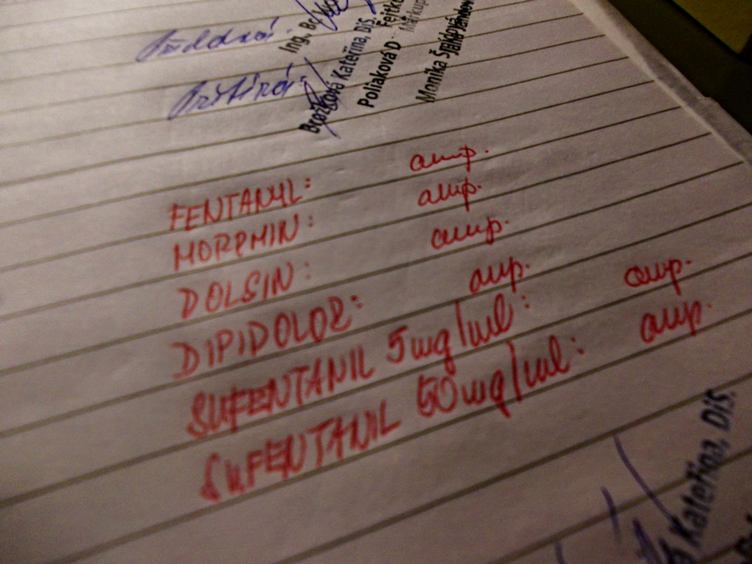 Předává: Ing. Bc.
Přebírá: Brožková Kateřina, DiS.
Poliaková D
Monika
FENTANYL: amp.
MORPHIN: amp.
DOLSIN: amp.
DIPIDOLOR: amp.
SUFENTANIL 5mg/ml: amp.
SUFENTANIL 50mg/ml: amp.
Kateřina, DiS.